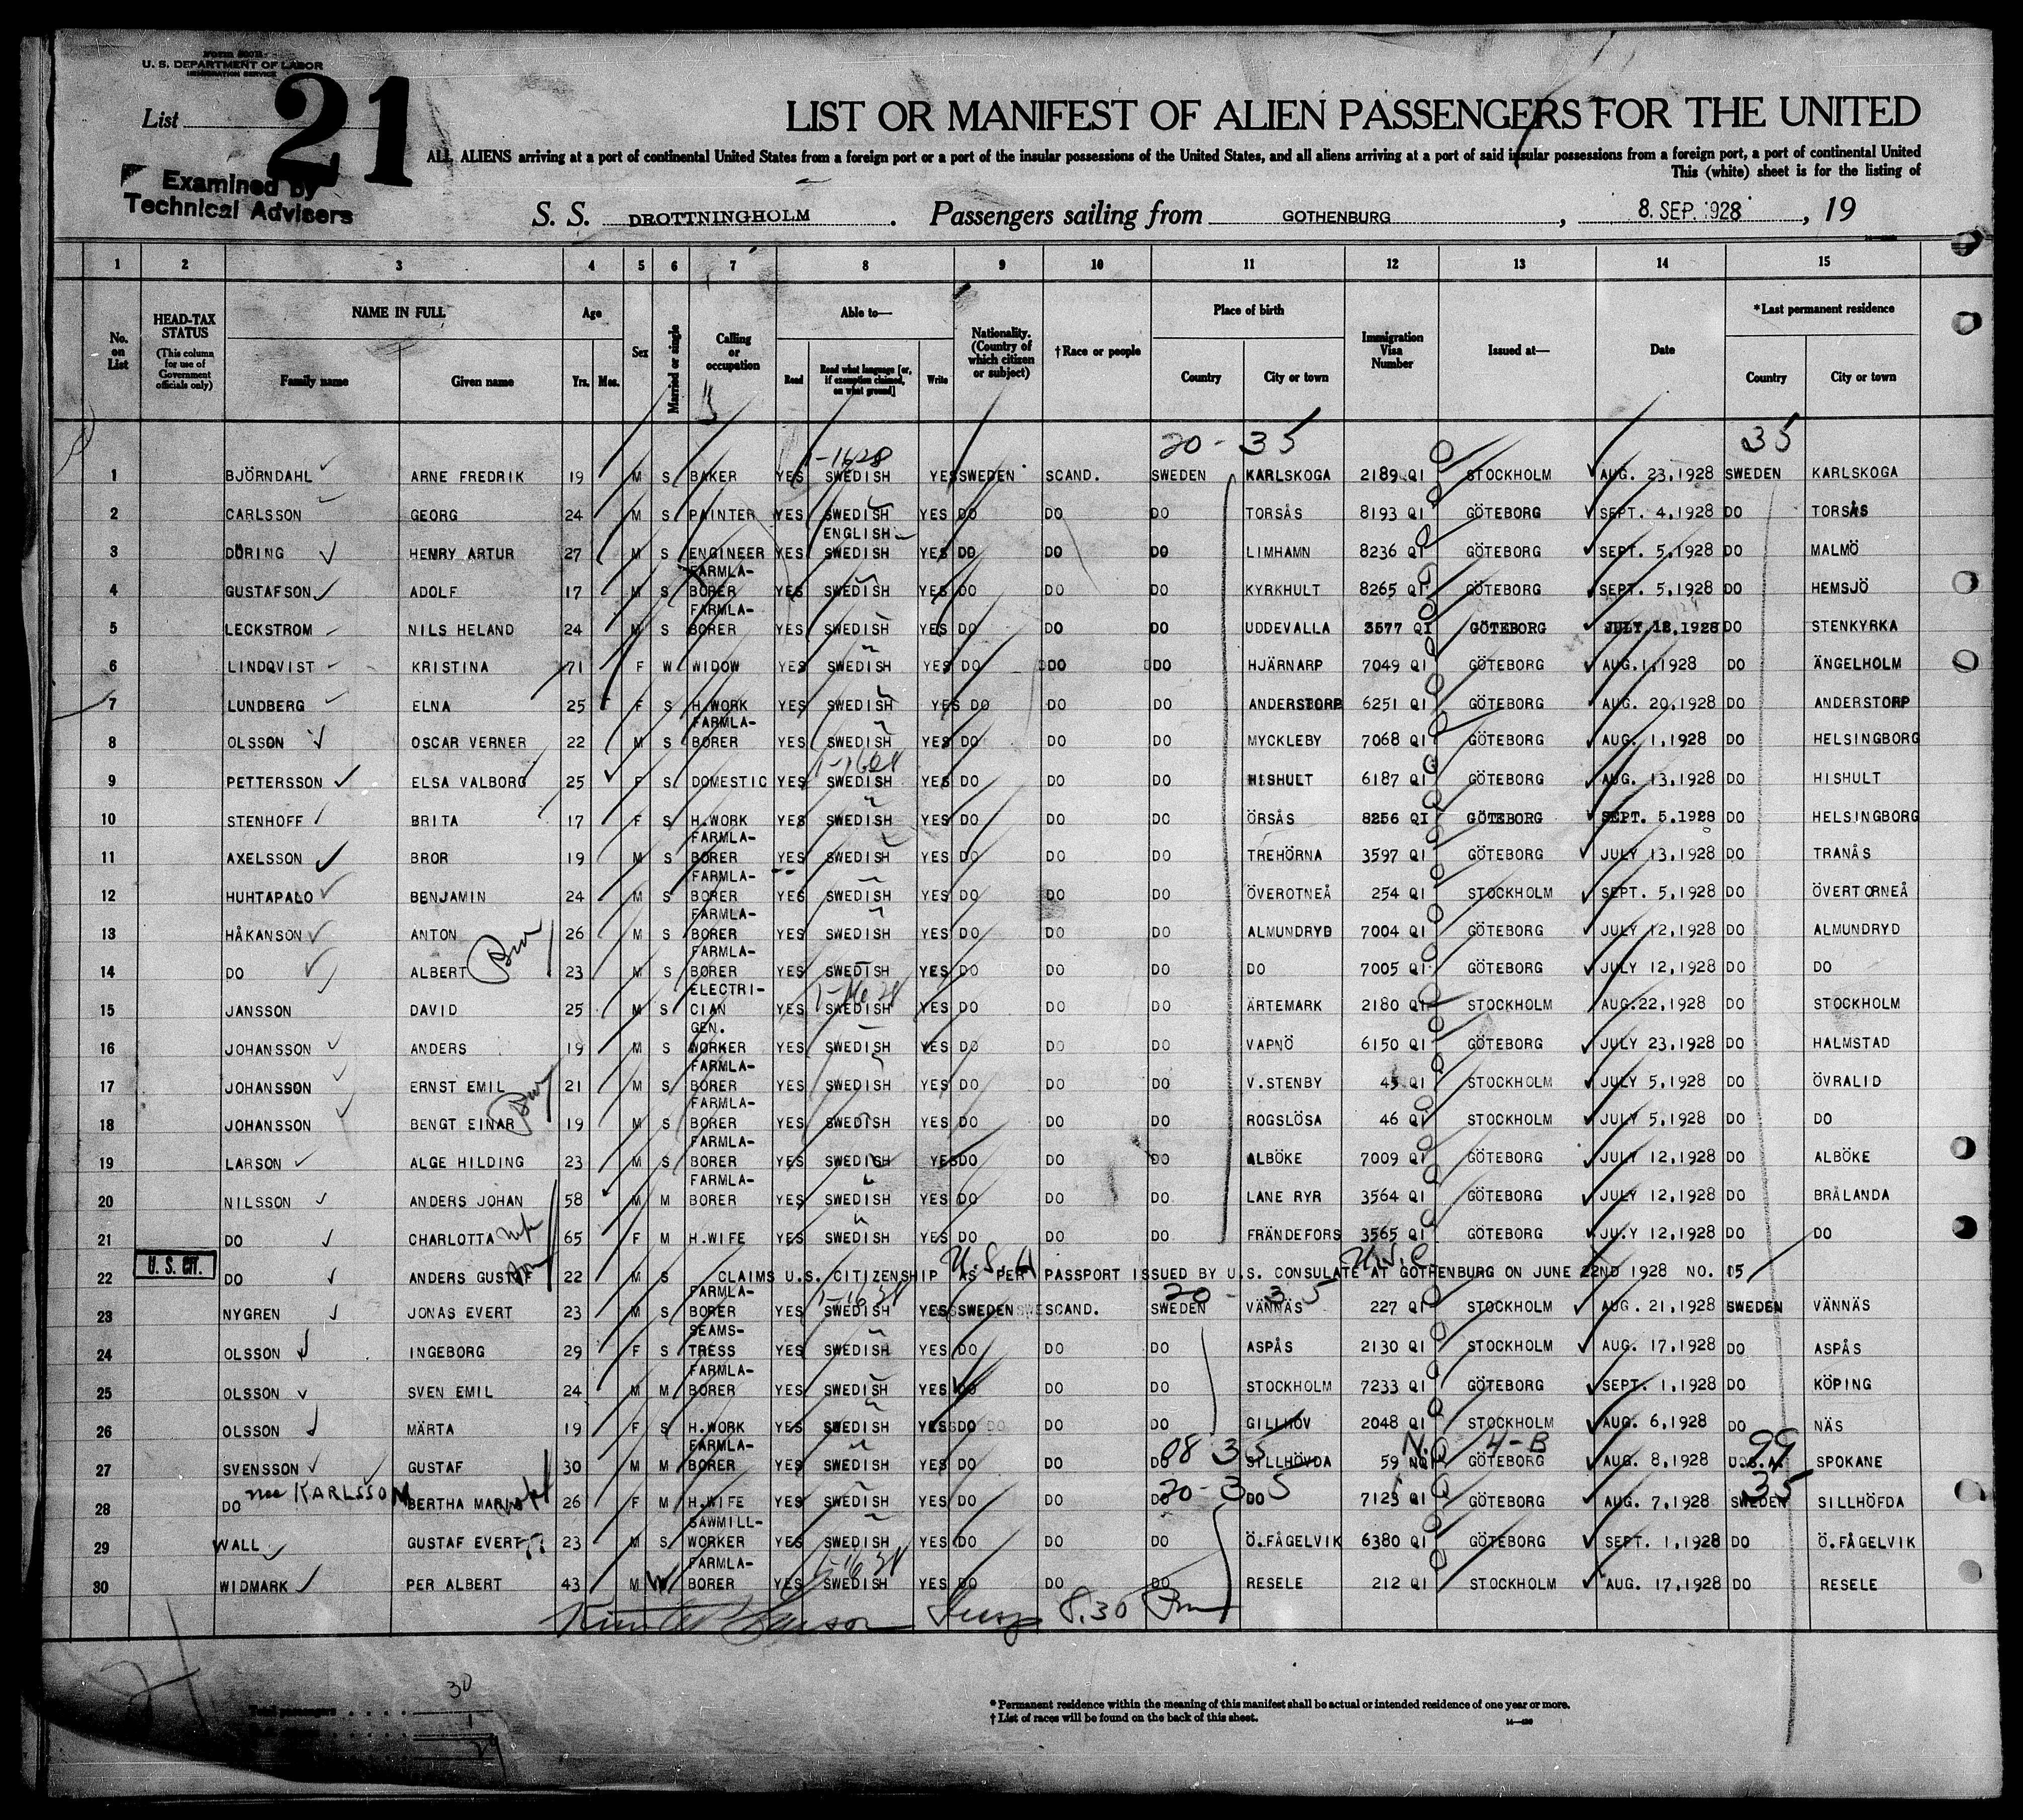 Form 500 B
U. S. DEPARTMENT OF LABOR
IMMIGRATION SERVICE
List 21
Examined by
Technical Advisers
LIST OR MANIFEST OF ALIEN PASSENGERS FOR THE UNITED
ALL ALIENS arriving at a port of continental United States from a foreign port or a port of the insular possessions of the United States, and all aliens arriving at a port of said insular possessions from a foreign port, a port of continental United
This (white) sheet is for the listing of
S. S. DROTTNINGHOLM . Passengers sailing from GOTHENBURG , 8. SEP. 1928 , 19
1 2 3 4 5 6 7 8 9 10 11 12 13 14 15
No. on List
HEAD-TAX STATUS (This column for use of Government officials only)
NAME IN FULL Family name Given name
Age Yrs. Mos.
Sex
Married or single
Calling or occupation
Able to— Read Read what language [or, if exemption claimed, on what ground] Write
Nationality. (Country of which citizen or subject)
†Race or people
Place of birth Country City or town
Immigration Visa Number
Issued at—
Date
*Last permanent residence Country City or town
20 - 35 35
1 BJÖRNDAHL ARNE FREDRIK 19 M S BAKER YES SWEDISH YES SWEDEN SCAND. SWEDEN KARLSKOGA 2189 QI STOCKHOLM AUG. 23,1928 SWEDEN KARLSKOGA
2 CARLSSON GEORG 24 M S PAINTER YES SWEDISH YES DO DO DO TORSÅS 8193 QI GÖTEBORG SEPT. 4,1928 DO TORSÅS
3 DÖRING HENRY ARTUR 27 M S ENGINEER YES ENGLISH SWEDISH YES DO DO DO LIMHAMN 8236 QI GÖTEBORG SEPT. 5,1928 DO MALMÖ
4 GUSTAFSON ADOLF 17 M S FARMLA-BORER YES SWEDISH YES DO DO DO KYRKHULT 8265 QI GÖTEBORG SEPT. 5,1928 DO HEMSJÖ
5 LECKSTROM NILS HELAND 24 M S FARMLA-BORER YES SWEDISH YES DO DO DO UDDEVALLA 3577 QI GÖTEBORG JULY 12,1928 DO STENKYRKA
6 LINDQVIST KRISTINA 71 F W WIDOW YES SWEDISH YES DO DO DO HJÄRNARP 7049 QI GÖTEBORG AUG.1,1928 DO ÄNGELHOLM
7 LUNDBERG ELNA 25 F S H.WORK YES SWEDISH YES DO DO DO ANDERSTORP 6251 QI GÖTEBORG AUG. 20,1928 DO ANDERSTORP
8 OLSSON OSCAR VERNER 22 M S FARMLA-BORER YES SWEDISH YES DO DO DO MYCKLEBY 7068 QI GÖTEBORG AUG. 1,1928 DO HELSINGBORG
9 PETTERSSON ELSA VALBORG 25 F S DOMESTIC YES SWEDISH YES DO DO DO HISHULT 6187 QI GÖTEBORG AUG. 13,1928 DO HISHULT
10 STENHOFF BRITA 17 F S H.WORK YES SWEDISH YES DO DO DO ÖRSÅS 8256 QI GÖTEBORG SEPT. 5.1928 DO HELSINGBORG
11 AXELSSON BROR 19 M S FARMLA-BORER YES SWEDISH YES DO DO DO TREHÖRNA 3597 QI GÖTEBORG JULY 13,1928 DO TRANÅS
12 HUHTAPALO BENJAMIN 24 M S FARMLA-BORER YES SWEDISH YES DO DO DO ÖVEROTNEÅ 254 QI STOCKHOLM SEPT. 5,1928 DO ÖVERTORNEÅ
13 HÅKANSON ANTON 26 M S FARMLA-BORER YES SWEDISH YES DO DO DO ALMUNDRYD 7004 QI GÖTEBORG JULY 12,1928 DO ALMUNDRYD
14 DO ALBERT Bro 23 M S FARMLA-BORER YES SWEDISH YES DO DO DO DO 7005 QI GÖTEBORG JULY 12,1928 DO DO
15 JANSSON DAVID 25 M S ELECTRI-CIAN YES SWEDISH YES DO DO DO ÄRTEMARK 2180 QI STOCKHOLM AUG.22,1928 DO STOCKHOLM
16 JOHANSSON ANDERS 19 M S GEN. WORKER YES SWEDISH YES DO DO DO VAPNÖ 6150 QI GÖTEBORG JULY 23,1928 DO HALMSTAD
17 JOHANSSON ERNST EMIL 21 M S FARMLA-BORER YES SWEDISH YES DO DO DO V.STENBY 45 QI STOCKHOLM JULY 5,1928 DO ÖVRALID
18 JOHANSSON BENGT EINAR Bro 19 M S FARMLA-BORER YES SWEDISH YES DO DO DO ROGSLÖSA 46 QI STOCKHOLM JULY 5,1928 DO DO
19 LARSON ALGE HILDING 23 M S FARMLA-BORER YES SWEDISH YES DO DO DO ALBÖKE 7009 QI GÖTEBORG JULY 12,1928 DO ALBÖKE
20 NILSSON ANDERS JOHAN 58 M M FARMLA-BORER YES SWEDISH YES DO DO DO LANE RYR 3564 QI GÖTEBORG JULY 12,1928 DO BRÅLANDA
21 DO CHARLOTTA wf 65 F M H.WIFE YES SWEDISH YES DO DO DO FRÄNDEFORS 3565 QI GÖTEBORG JULY 12,1928 DO DO
U. S. CIT. U.S.A U.S.C
22 DO ANDERS GUSTAF 22 M S CLAIMS U.S. CITIZENSHIP AS PER PASSPORT ISSUED BY U.S. CONSULATE AT GOTHENBURG ON JUNE 22ND 1928 NO. 15
20 - 35
23 NYGREN JONAS EVERT 23 M S FARMLA-BORER YES SWEDISH YES SWEDEN SCAND. SWEDEN VÄNNÄS 227 QI STOCKHOLM AUG. 21,1928 SWEDEN VÄNNÄS
24 OLSSON INGEBORG 29 F S SEAMS-TRESS YES SWEDISH YES DO DO DO ASPÅS 2130 QI STOCKHOLM AUG. 17,1928 DO ASPÅS
25 OLSSON SVEN EMIL 24 M M FARMLA-BORER YES SWEDISH YES DO DO DO STOCKHOLM 7233 QI GÖTEBORG SEPT. 1,1928 DO KÖPING
26 OLSSON MÄRTA 19 F S H.WORK YES SWEDISH YES DO DO DO GILLHOV 2048 QI STOCKHOLM AUG. 6,1928 DO NÄS
08 35 N. 4-B 99
27 SVENSSON GUSTAF 30 M M FARMLA-BORER YES SWEDISH YES DO DO DO SILLHÖVDA 59 NQI GÖTEBORG AUG. 8,1928 U.S.A. SPOKANE
20-35 35
28 DO nee KARLSSON BERTHA MARIA wf 26 F M H.WIFE YES SWEDISH YES DO DO DO DO 7123 QI GÖTEBORG AUG. 7,1928 SWEDEN SILLHÖFDA
29 WALL GUSTAF EVERT 23 M S SAWMILL-WORKER YES SWEDISH YES DO DO DO Ö.FÅGELVIK 6380 QI GÖTEBORG SEPT. 1,1928 DO Ö.FÅGELVIK
30 WIDMARK PER ALBERT 43 M W FARMLA-BORER YES SWEDISH YES DO DO DO RESELE 212 QI STOCKHOLM AUG. 17,1928 DO RESELE
8.30 Pm
Total passengers 30
1
29
* Permanent residence within the meaning of this manifest shall be actual or intended residence of one year or more.
† List of races will be found on the back of this sheet.